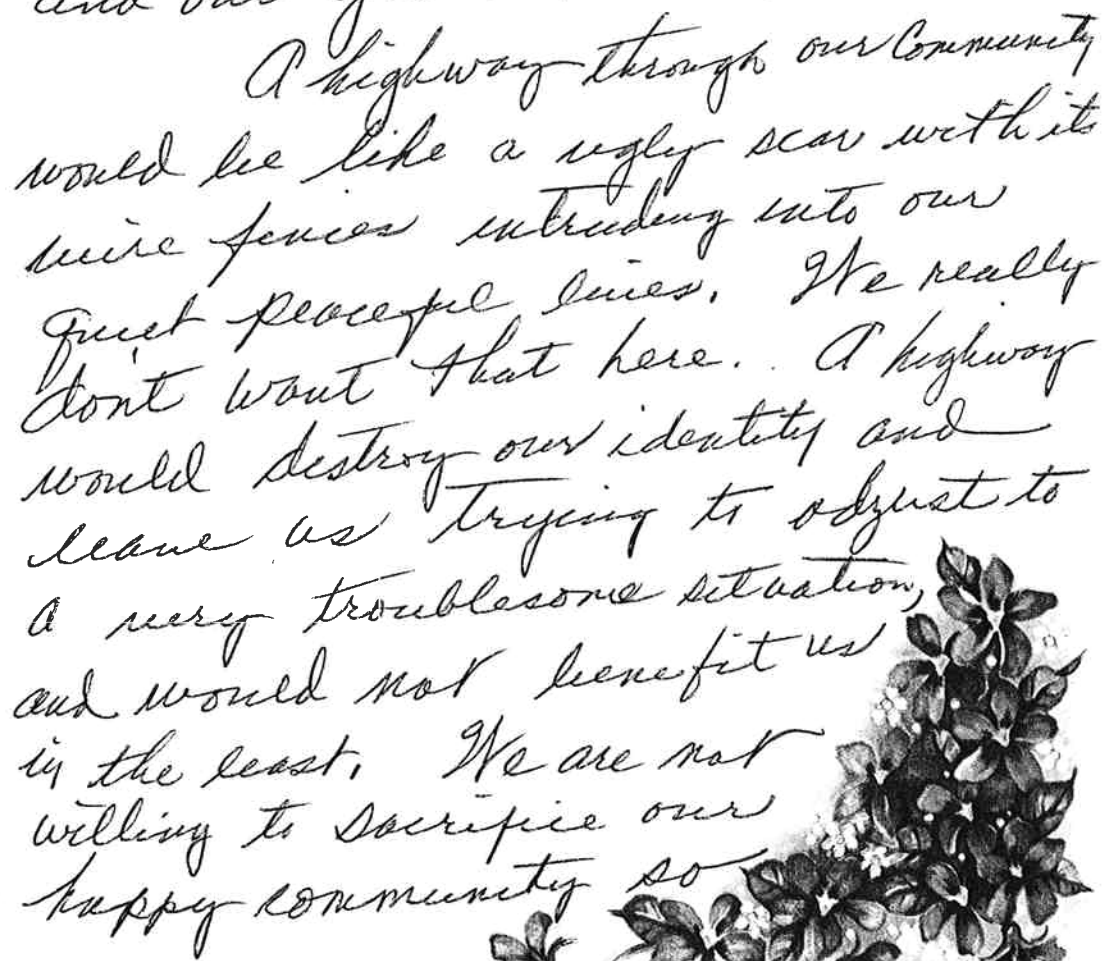 and our
A highway through our Community
would be like a ugly scar with its
wire fences intruding into our
quiet peaceful lives. We really
don't want that here. A highway
would destroy our identity and
leave us trying to adjust to
a very troublesome situation,
and would not benefit us
in the least. We are not
willing to sacrifice our
happy community so